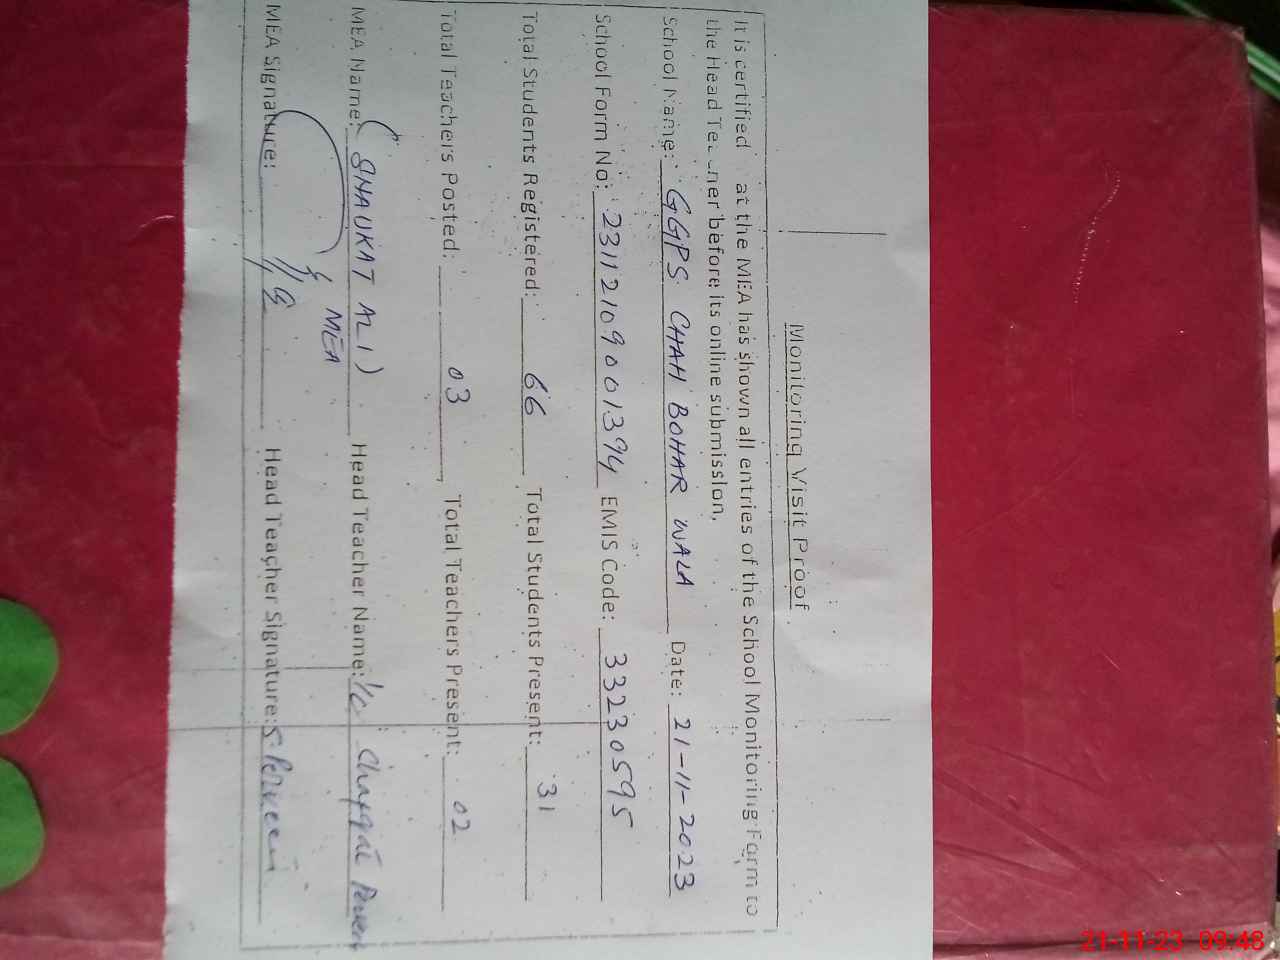 Monitoring Visit Proof
It is certified at the MEA has shown all entries of the School Monitoring Form to
the Head Te ner before its online submission,
School Name: GGPS CHAH BOHAR WALA Date: 21-11-2023
School Form No: 23112109001394 EMIS Code: 33230595
Total Students Registered: 66 Total Students Present: 31
Total Teachers Posted: 03 Total Teachers Present: 02
MEA Name: (SHAUKAT ALI) Head Teacher Name: I/C Perveen
MEA
MEA Signature: Head Teacher Signature: S Perveen
21-11-23 09:48